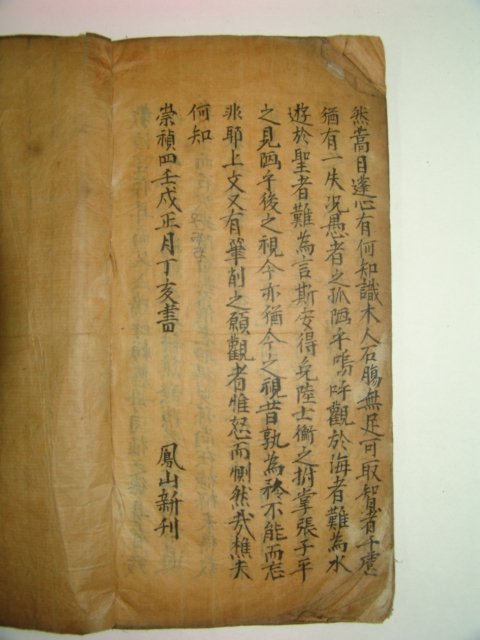 然蒿目蓬心有何知識木人石膓無足可取智者千慮
猶有一失況愚者之孤陋乎嗚呼觀於海者難為水
遊於聖者難為言斯安得免陸士衡之拊掌張子平
之見陋乎後之視今亦猶今之視昔孰為矜不能而忘
非耶上文又有筆削之願觀者惟恕而惻然我樵夫
何知
崇禎四壬戌正月丁亥書
鳳山新刊